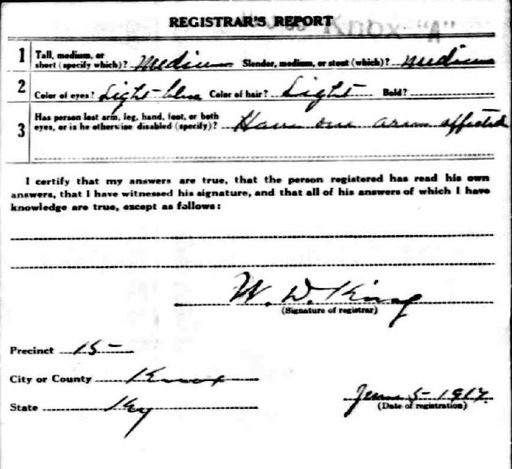 REGISTRAR'S REPORT
Knox "A"
1 Tall, medium, or short (specify which)? Medium Slender, medium, or stout (which)? medium
2 Color of eyes? Light blue Color of hair? Light Bald?
3 Has person lost arm, leg, hand, foot, or both eyes, or is he otherwise disabled (specify)? Have one arm affected
I certify that my answers are true, that the person registered has read his own
answers, that I have witnessed his signature, and that all of his answers of which I have
knowledge are true, except as follows:
W. D. King
(Signature of registrar)
Precinct 15
City or County Knox
State Ky
June 5-1917.
(Date of registration)